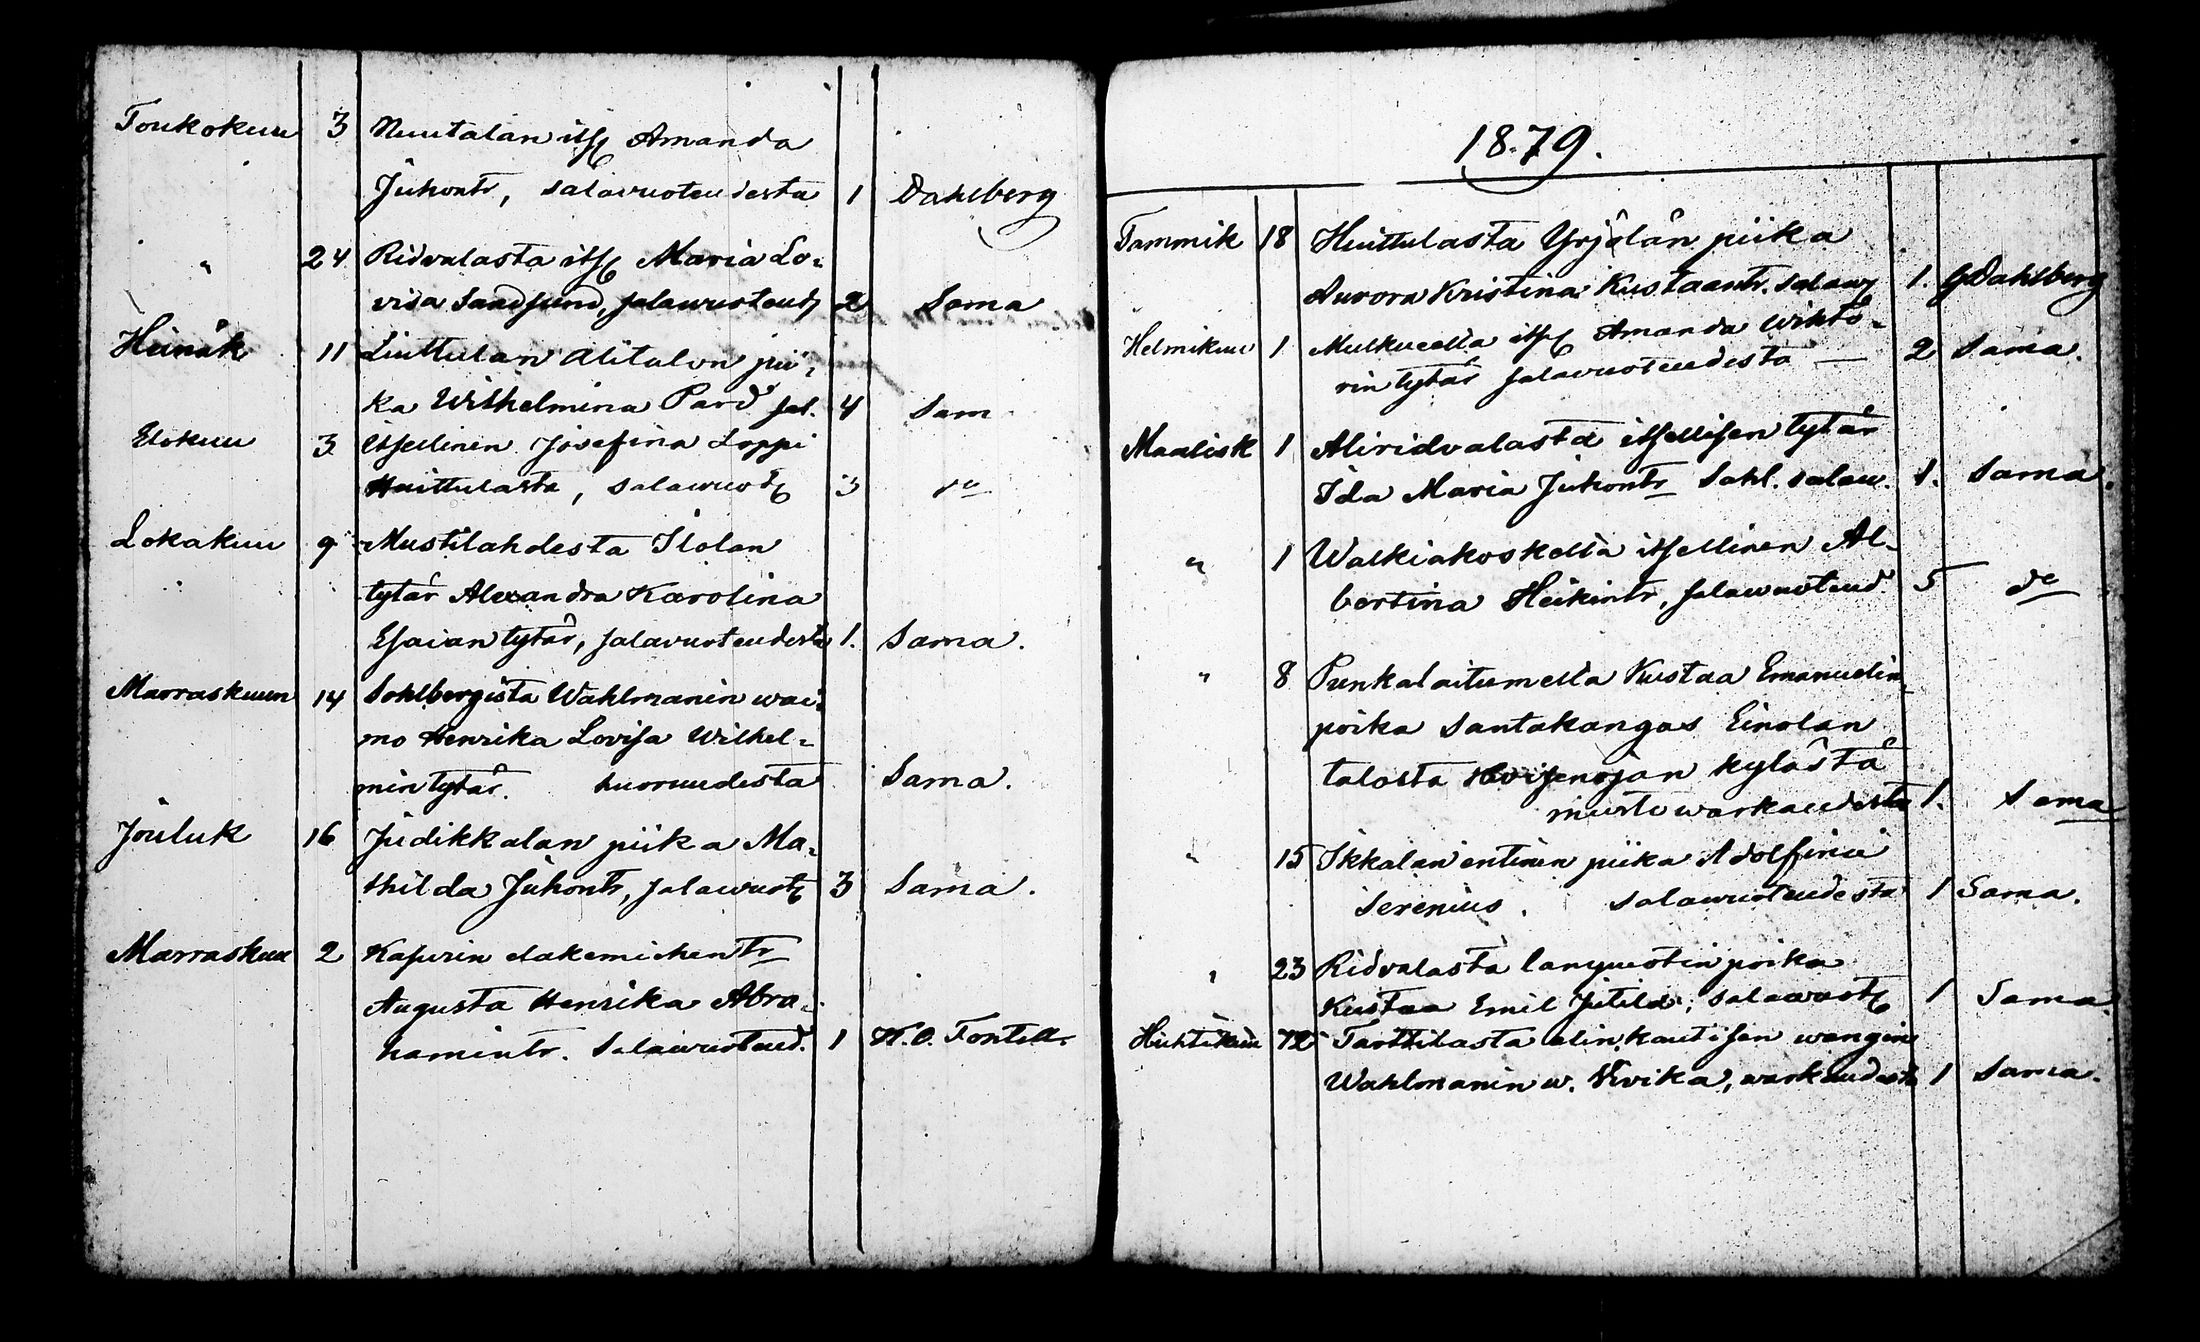 Toukokuu 3 Nuutalan itsç Amanda
Juhontr, salavuoteudesta 1 Dahlberg
" 24 Ridvalasta itsç Maria Lo-
visa Sandsund, salawuoteudç 2 Sama
Heinäk 11 Liuttulan Alitalon pii-
ka Wilhelmina Pard sal. 4 Sam
Elokuu 3 Itsellinen Josefina Loppi
Huittulasta, salawuotç 3 do
Lokakuu 9 Mustilahdesta Ilolan
tytär Alexandra Karolina
Esaian tytär, salavuoteudesta 1. Sama.
Marraskuun 14 Sohlbergista Wahlmanin wai-
mo Henrika Lovisa Wilhel-
mintytär. huoruudesta Sama.
Jouluk 16 Judikkalan piika Ma-
thilda Juhontr, salawuotç 3 Sama.
Marraskuu 2 Kapurin elakemiehen tr
Augusta Henrika Abra-
hamintr. Salawuoteud. 1 K.O. Fontell.
1879.
Tammik 18 Huittulasta Yrjölän piika
Aurora Kristina Kustaantr. salawç 1. GDahlberg
Helmikuu 1 Mulkueella itsç Amanda Wikto-
rin tytär salavuoteudesta — 2 Sama.
Maalisk 1 Aliridvalasta itsellisen tytär
Ida Maria Juhontr Sahl. salaw. 1. Sama.
" 1 Walkiakoskella itsellinen Al-
bertina Heikintr, salawuoteud 5 do
" 8 Punkalaitumella Kustaa Emanuelin
poika Santakangas Einolan
talosta Hvisenojan kylästä
murtowarkaudesta 1. Sama
" 15 Ikkalan entinen piika Adolfina
Serenius. salawuoteudesta 1 Sama.
" 23 Ridvalasta lampuotin poika
Kustaa Emil Jutila, salawuotç 1 Sama.
Huhtikuu 12 Tarttilasta elinkautisen wangin
Wahlmanin w. Vivika, warkaudesta 1 Sama.